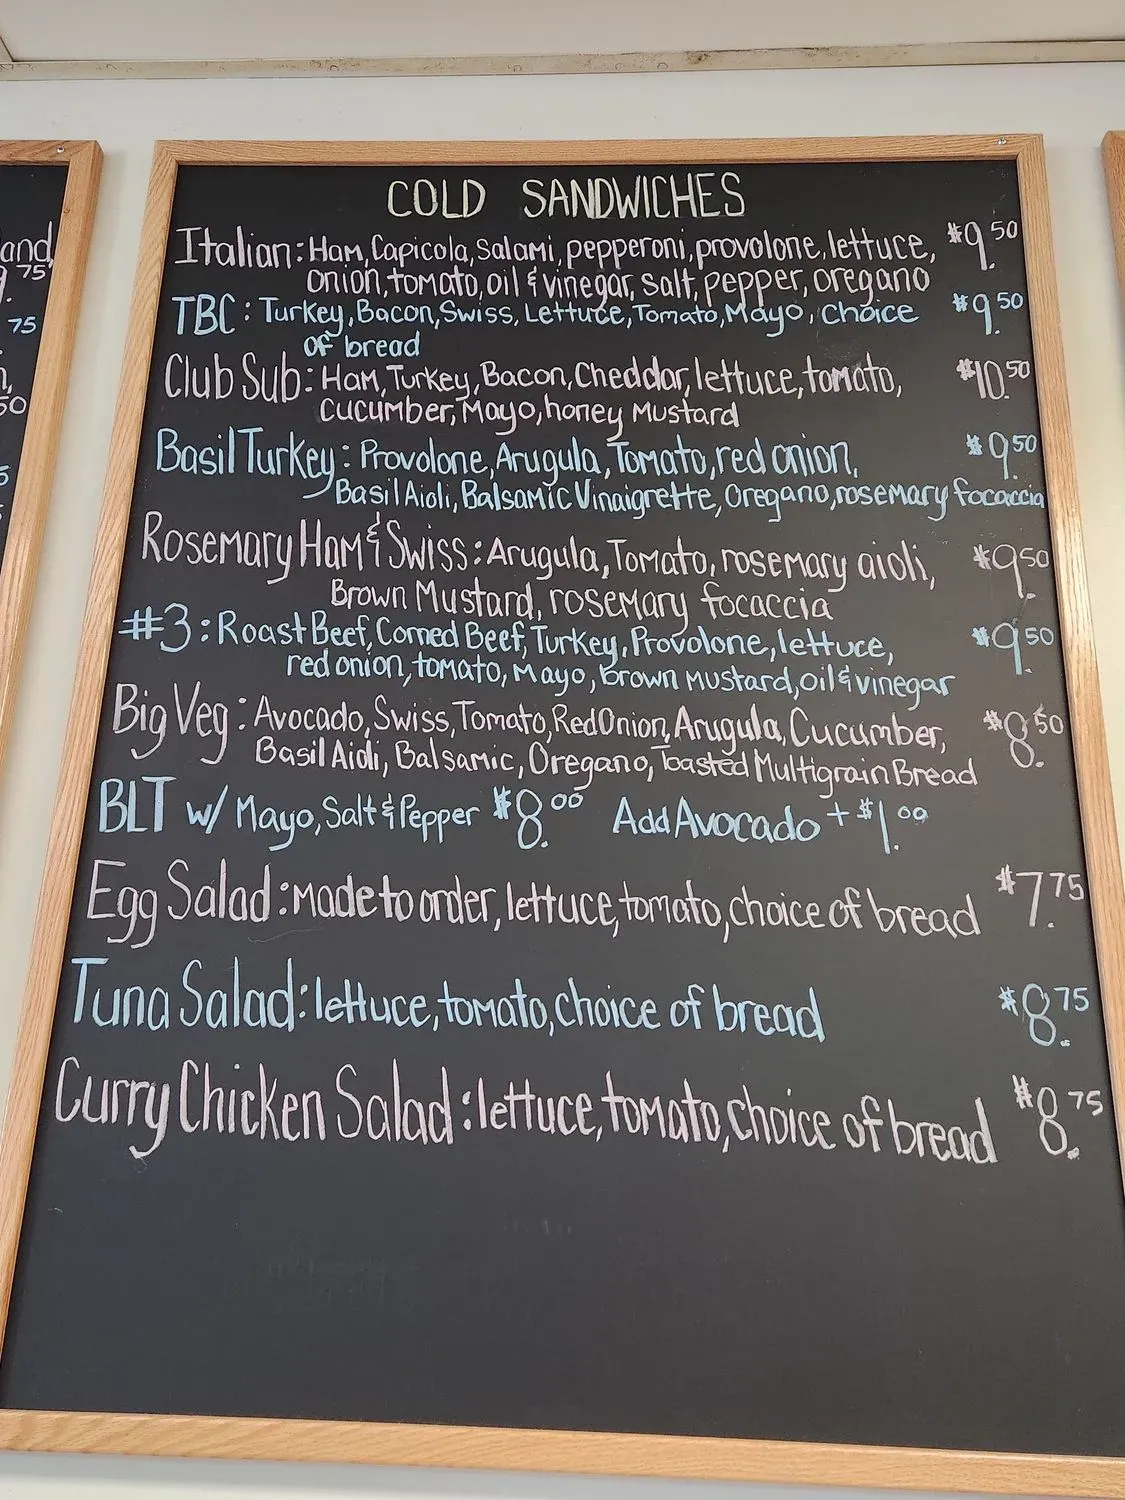 COLD SANDWICHES
Italian: Ham, Capicola, Salami, pepperoni, provolone, lettuce, $9.50
onion, tomato, oil & vinegar, salt, pepper, oregano
TBC: Turkey, Bacon, Swiss, Lettuce, Tomato, Mayo, choice $9.50
of bread
Club Sub: Ham, Turkey, Bacon, Cheddar, lettuce, tomato, $10.50
cucumber, Mayo, honey Mustard
Basil Turkey: Provolone, Arugula, Tomato, red onion, $9.50
Basil Aioli, Balsamic Vinaigrette, Oregano, rosemary focaccia
Rosemary Ham & Swiss: Arugula, Tomato, rosemary aioli, $9.50
Brown Mustard, rosemary focaccia
#3: Roast Beef, Corned Beef, Turkey, Provolone, lettuce, $9.50
red onion, tomato, Mayo, brown mustard, oil & vinegar
Big Veg: Avocado, Swiss, Tomato, Red Onion, Arugula, Cucumber, $8.50
Basil Aioli, Balsamic, Oregano, Toasted Multigrain Bread
BLT w/ Mayo, Salt & Pepper $8.00 Add Avocado + $1.00
Egg Salad: Made to order, lettuce, tomato, choice of bread $7.75
Tuna Salad: lettuce, tomato, choice of bread $8.75
Curry Chicken Salad: lettuce, tomato, choice of bread $8.75